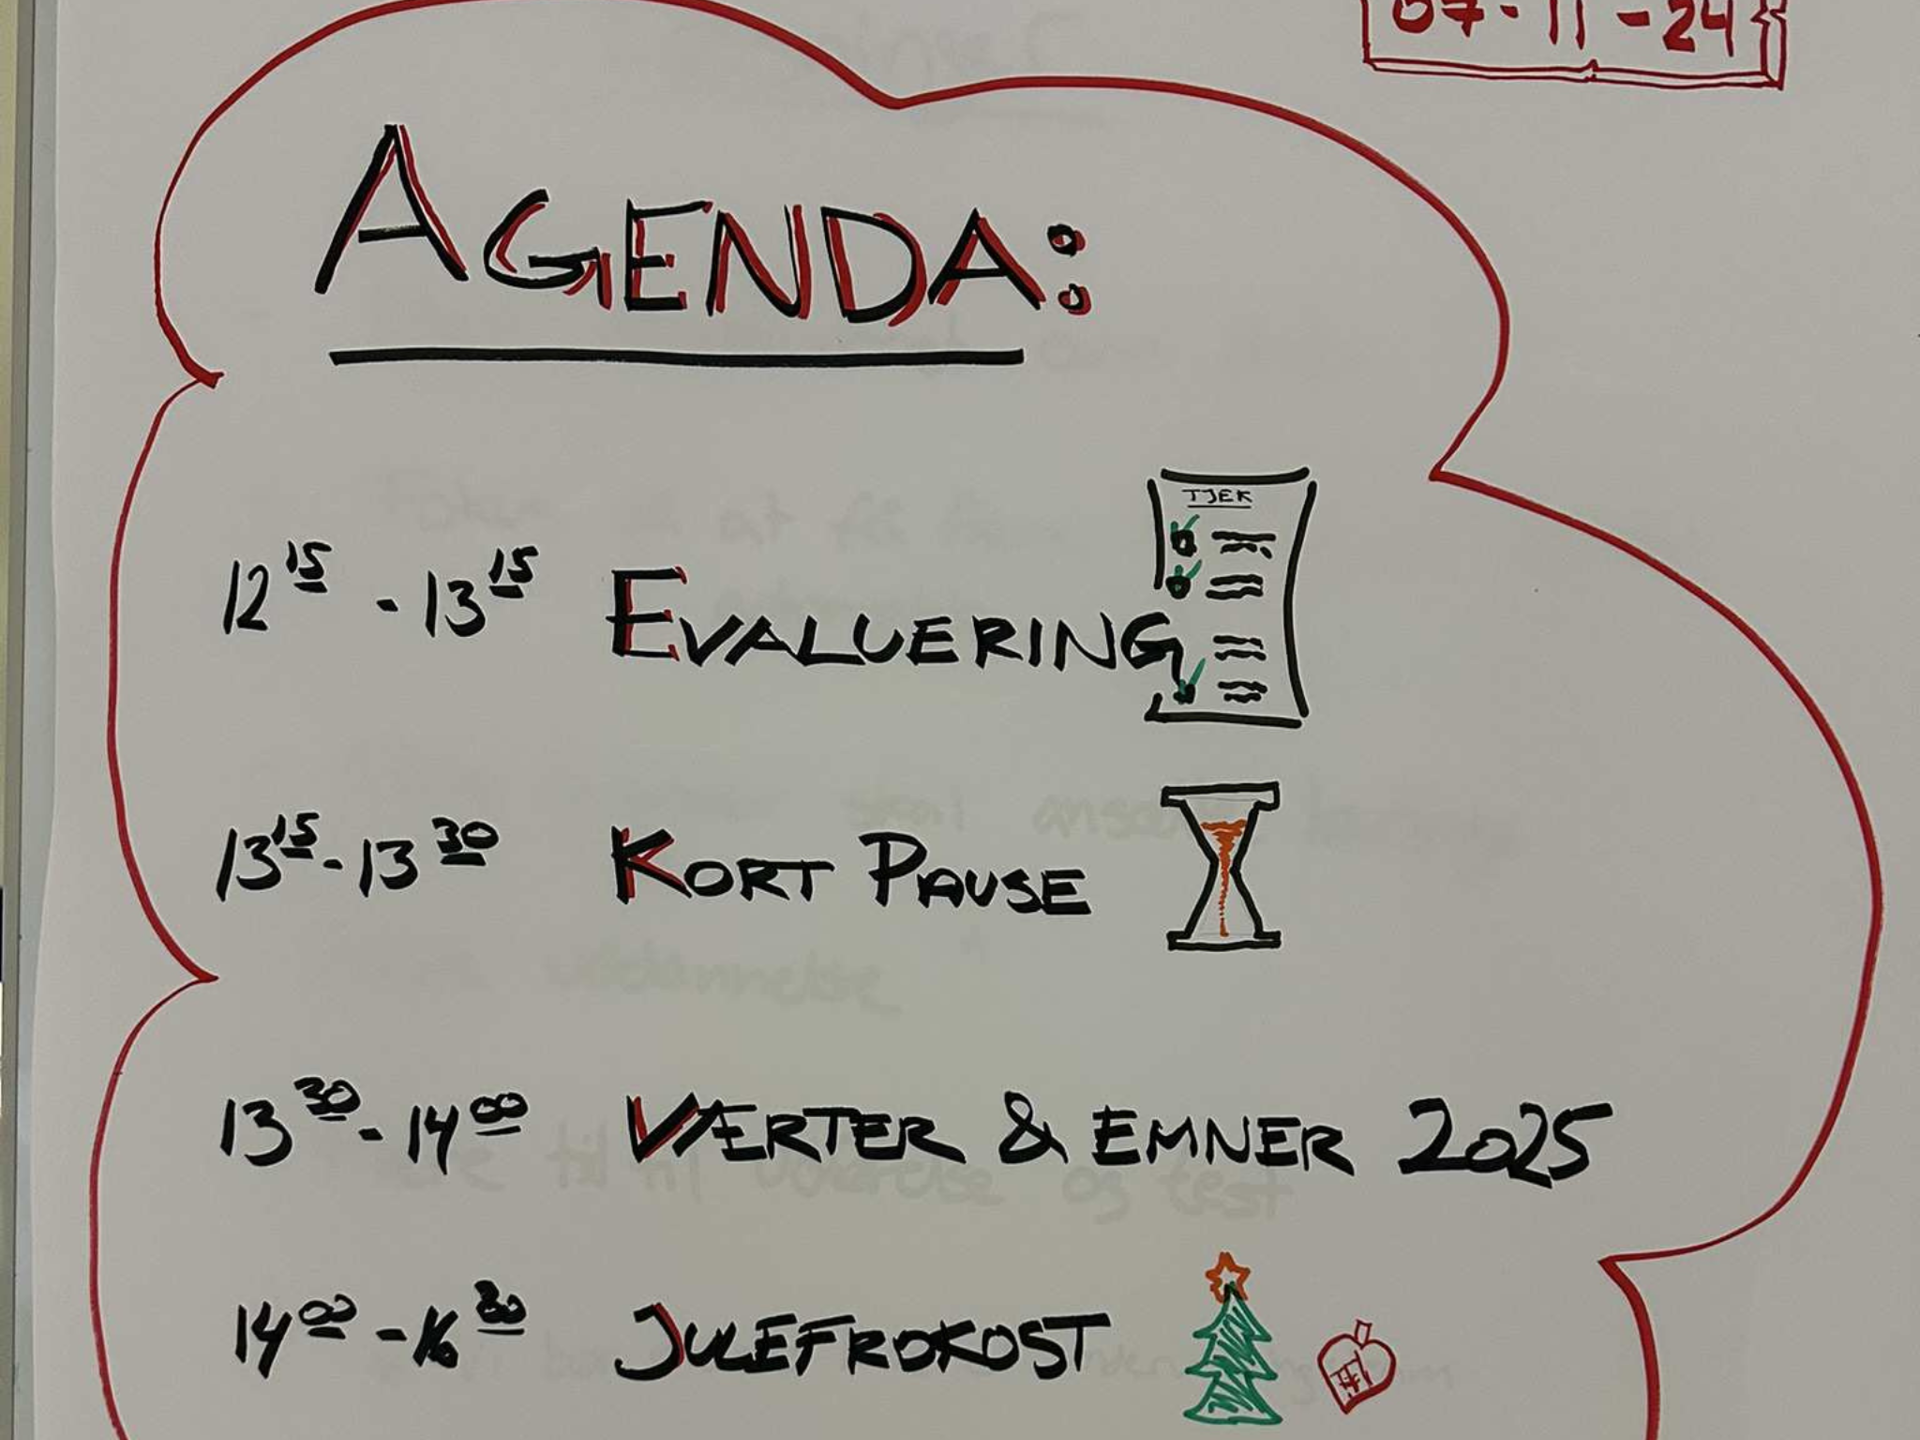 07-11-24
AGENDA:
TJEK
12 15 - 13 15 EVALUERING
13 15 - 13 30 KORT PAUSE
13 30 - 14 00 VÆRTER & EMNER 2025
14 00 - 16 30 JULEFROKOST